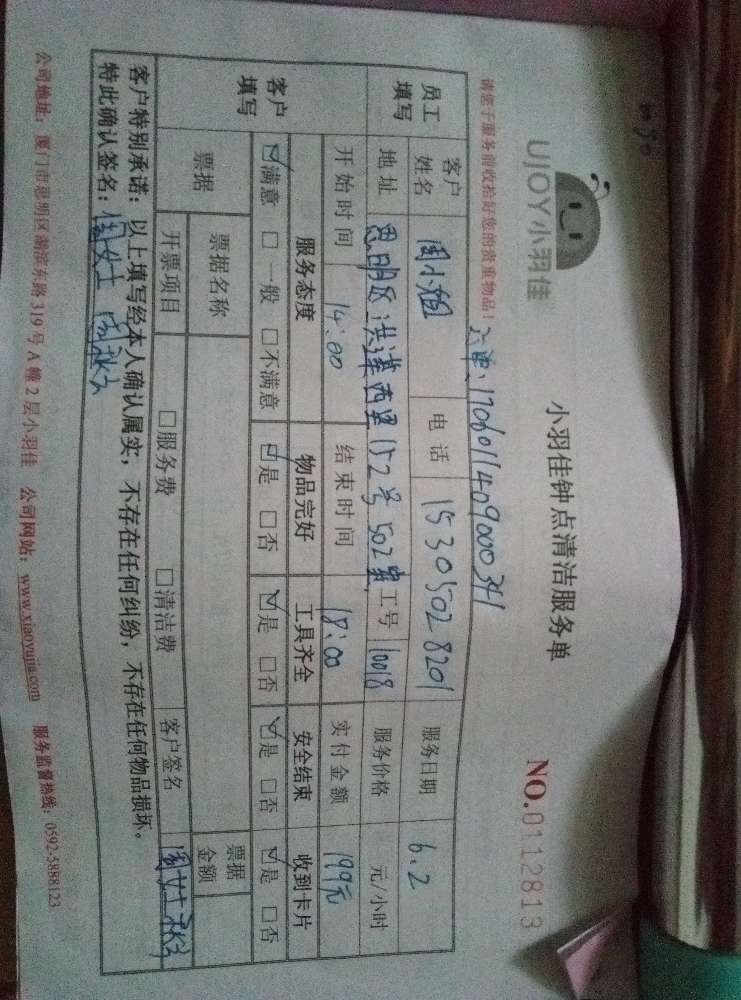 UJOY小羽佳
小羽佳钟点清洁服务单
NO.0112813
请您于服务前收拾好您的贵重物品！
1706011409000341
员工填写
客户姓名 周小姐 电话 15305028201 服务日期 6.2
地址 思明区洪莲西里152号502室 工号 10018 服务价格 元/小时
开始时间 14:00 结束时间 18:00 实付金额 199元
客户填写
服务态度 物品完好 工具齐全 安全结束 收到卡片
☑满意 □一般 □不满意 ☑是 □否 ☑是 □否 ☑是 □否 ☑是 □否
票据 票据名称 票据金额
开票项目 □服务费 □清洁费 客户签名 周女士
客户特别承诺：以上填写经本人确认属实，不存在任何纠纷，不存在任何物品损坏。
特此确认签名：周女士
公司地址：厦门市思明区湖滨东路319号A幢2层小羽佳 公司网站：www.xiaoyujia.com 服务监督热线：0592-5888123